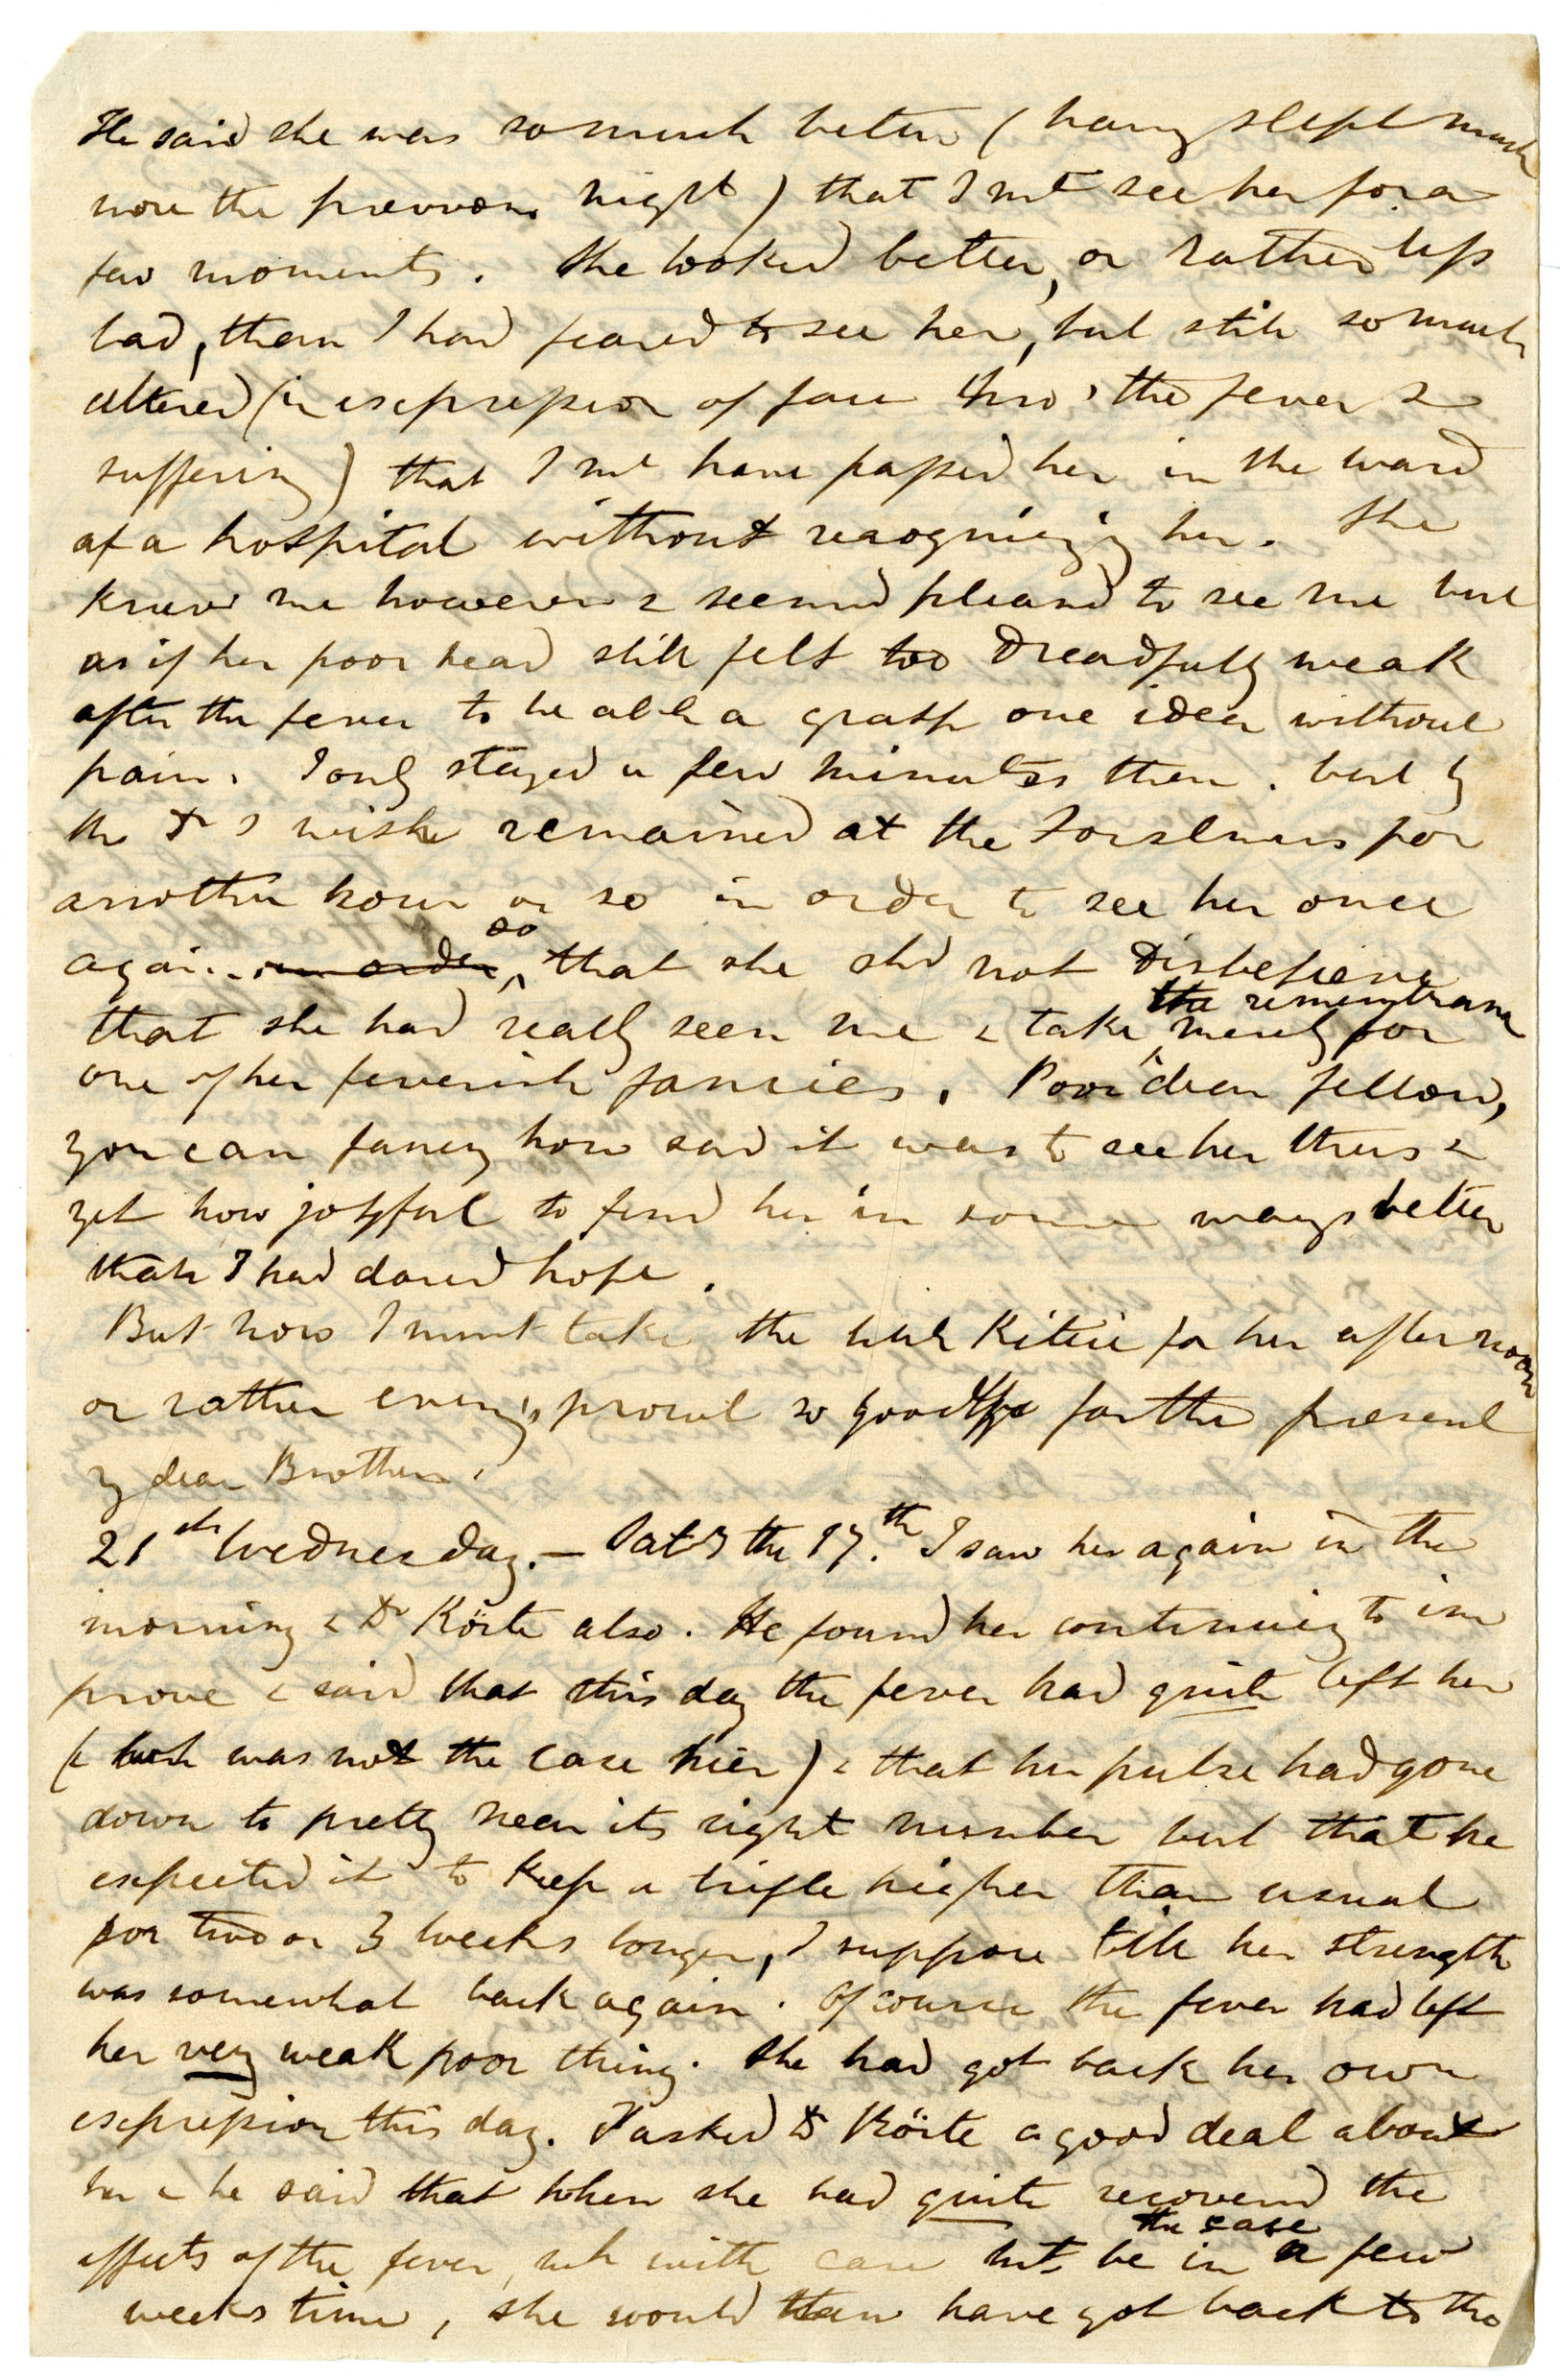 He said she was so much better (having slept much
more the previous night) that I mt see her for a
few moments. She looked better, or rather less
bad, than I had feared to see her, but still so much
altered (in expression of face thro' the fever &
suffering) that I mt have passed her in the ward
of a hospital without recognizing her. She
knew me however & seemed pleased to see me but
as if her poor head still felt too dreadfully weak
after the fever to be able a grasp one idea without
pain. I only stayed a few minutes then. but by
the Dr's wish remained at the for
another hour or so in order to see her once
again in order so that she shd not disbelieve
that she had really seen me & take the remembrance merely for
one of her feverish fancies. Poor dear fellow,
you can fancy how sad it was to see her thus &
yet how joyful to find her in some ways better
than I had dared hope.
But now I must take the little Kitie for her afternoon
or rather eveng prowl so goodbye for the present
my dear Brother.
21st Wednesday. — Satdy the 17th. I saw her again in the
morning & Dr Körte also. He found her continuing to im
prove & said that this day the fever had quite left her
(wh was not the case hier) & that her pulse had gone
down to pretty near its right number but that he
expected it to keep a trifle higher than usual
for two or 3 weeks longer, I suppose till her strength
was somewhat back again. Of course the fever had left
her very weak poor thing. She had got back her own
expression this day. I asked Dr Körte a good deal about
her & he said that when she had quite recovered the
effects of the fever, wh with care mt be the case in a few
weeks time, she would then have got back to the